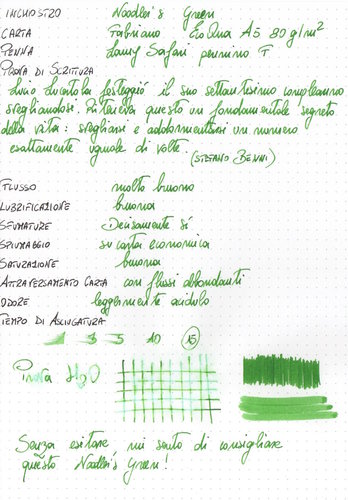 INCHIOSTRO Noodler's Green
CARTA Fabriano EcoQua A5 80 g/m²
PENNA Lamy Safari pennino F
PROVA DI SCRITTURA
Livio Lucertola festeggiò il suo settantesimo compleanno
svegliandosi. Riteneva questo un fondamentale segreto
della vita: svegliarsi e addormentarsi un numero
esattamente uguale di volte. (STEFANO BENNI)
FLUSSO molto buono
LUBRIFICAZIONE buona
SFUMATURE Decisamente sì
SPIUMAGGIO su carta economica
SATURAZIONE buona
ATTRAVERSAMENTO CARTA con flussi abbondanti
ODORE leggermente acidulo
TEMPO DI ASCIUGATURA
3 5 10 15
Prova H₂O
Senza esitare mi sento di consigliare
questo Noodler's Green!